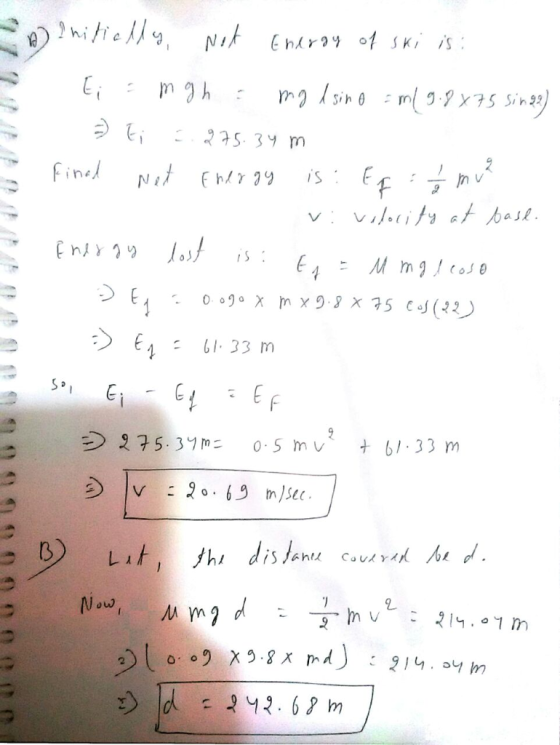 A) Initially, Net Energy of ski is:
E_i = mgh = mg l sinθ = m(9.8 × 75 sin22)
⇒ E_i = 275.34 m
Final Net Energy is: E_F = 1/2 mv²
v: velocity at base.
Energy lost is: E_f = μ mg l cosθ
⇒ E_f = 0.090 × m × 9.8 × 75 cos(22)
⇒ E_f = 61.33 m
So, E_i - E_f = E_F
⇒ 275.34m = 0.5 mv² + 61.33 m
⇒ v = 20.69 m/sec.
B) Let, the distance covered be d.
Now, μ mg d = 1/2 mv² = 214.04 m
⇒ (0.09 × 9.8 × md) = 214.04 m
⇒ d = 242.68 m